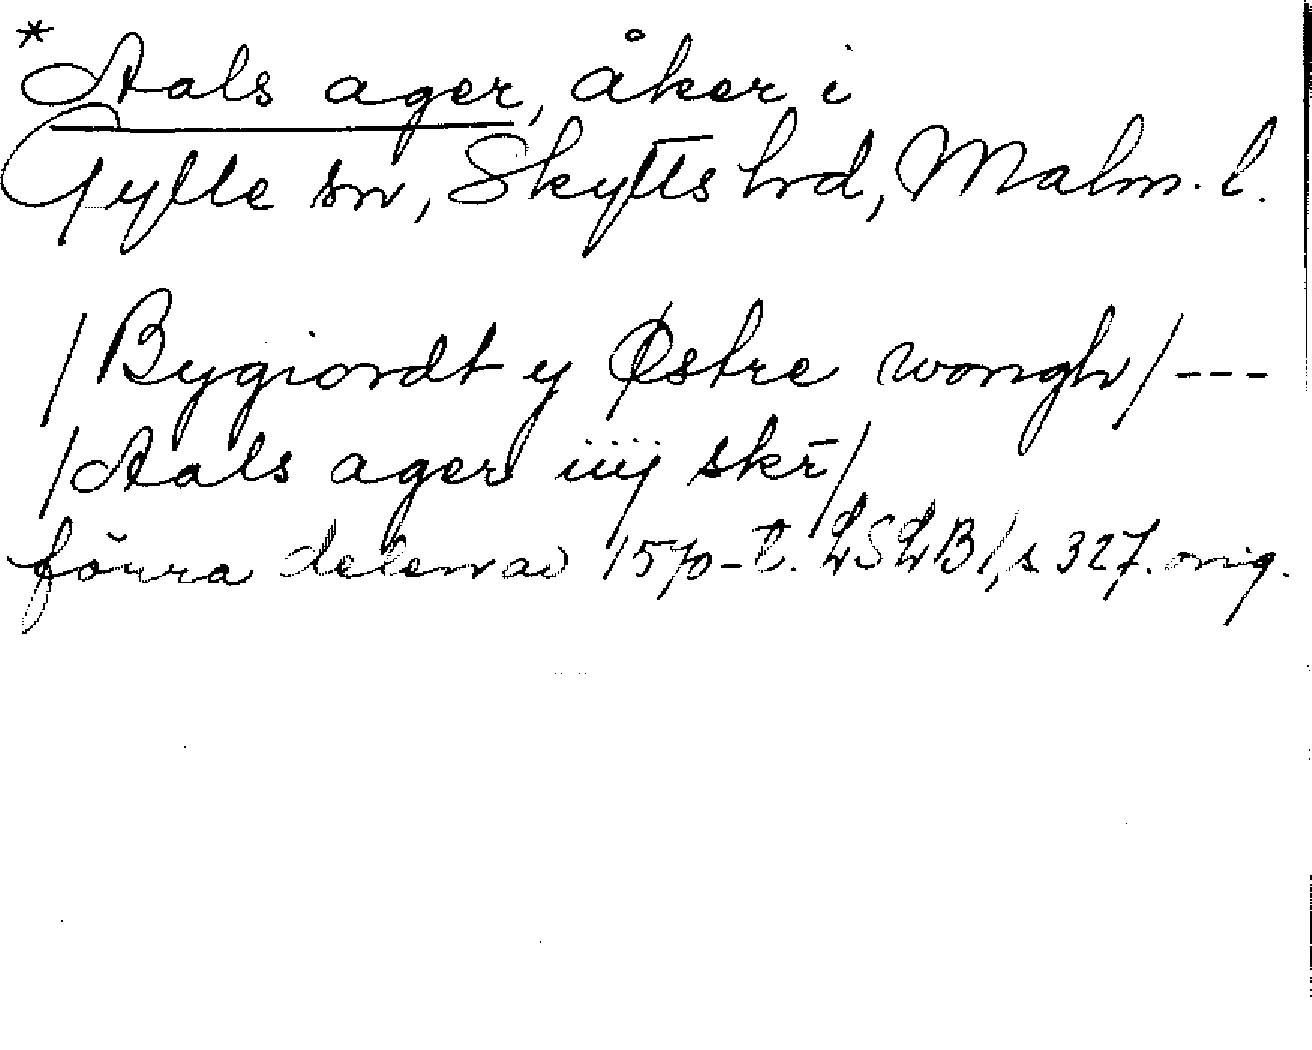 *Aals ager, åker i
Gylle sn, Skytts hrd, Malm. l.
/Bygiordt y Østre wongh/ ---
/Aals ager iiij skr̄/
förra delen av 1570-t. LSLB I, s 327. orig.